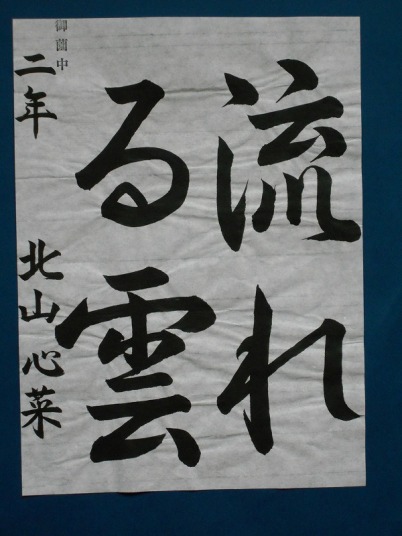 流れ
る雲
御薗中
二年 北山心菜